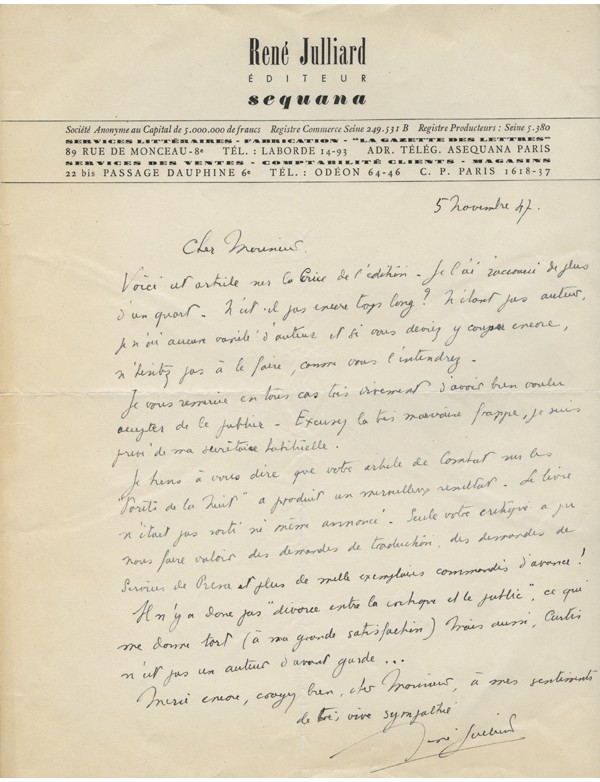 René Julliard
ÉDITEUR
sequana
Société Anonyme au Capital de 5.000.000 de francs Registre Commerce Seine 249.531 B Registre Producteurs : Seine 5.380
SERVICES LITTÉRAIRES - FABRICATION - "LA GAZETTE DES LETTRES"
89 RUE DE MONCEAU-8e TÉL. : LABORDE 14-93 ADR. TÉLÉG. ASEQUANA PARIS
SERVICES DES VENTES - COMPTABILITÉ CLIENTS - MAGASINS
22 bis PASSAGE DAUPHINE 6e TÉL. : ODÉON 64-46 C. P. PARIS 1618-37
5 Novembre 47.
Cher Monsieur.
Voici cet article sur la Crise de l'édition. Je l'ai raccourci de plus
d'un quart. N'est-il pas encore trop long ? N'étant pas auteur,
je n'ai aucune vanité d'auteur et si vous devez y couper encore,
n'hésitez pas à le faire, comme vous l'entendrez.
Je vous remercie en tous cas très vivement d'avoir bien voulu
accepter de le publier. Excusez la très mauvaise frappe, je suis
privé de ma secrétaire habituelle.
Je tiens à vous dire que votre article de Combat sur les
"Forêts de la Nuit" a produit un merveilleux résultat. Le livre
n'était pas sorti ni même annoncé. Seule votre critique a pu
nous faire valoir des demandes de traduction, des demandes de
Services de Presse et plus de mille exemplaires commandés d'avance !
Il n'y a donc pas "divorce entre la critique et le public", ce qui
me donne tort (à ma grande satisfaction) Mais aussi, Curtis
n'est pas un auteur d'avant garde ...
Merci encore, croyez bien, cher Monsieur, à mes sentiments
de très vive sympathie
René Julliard